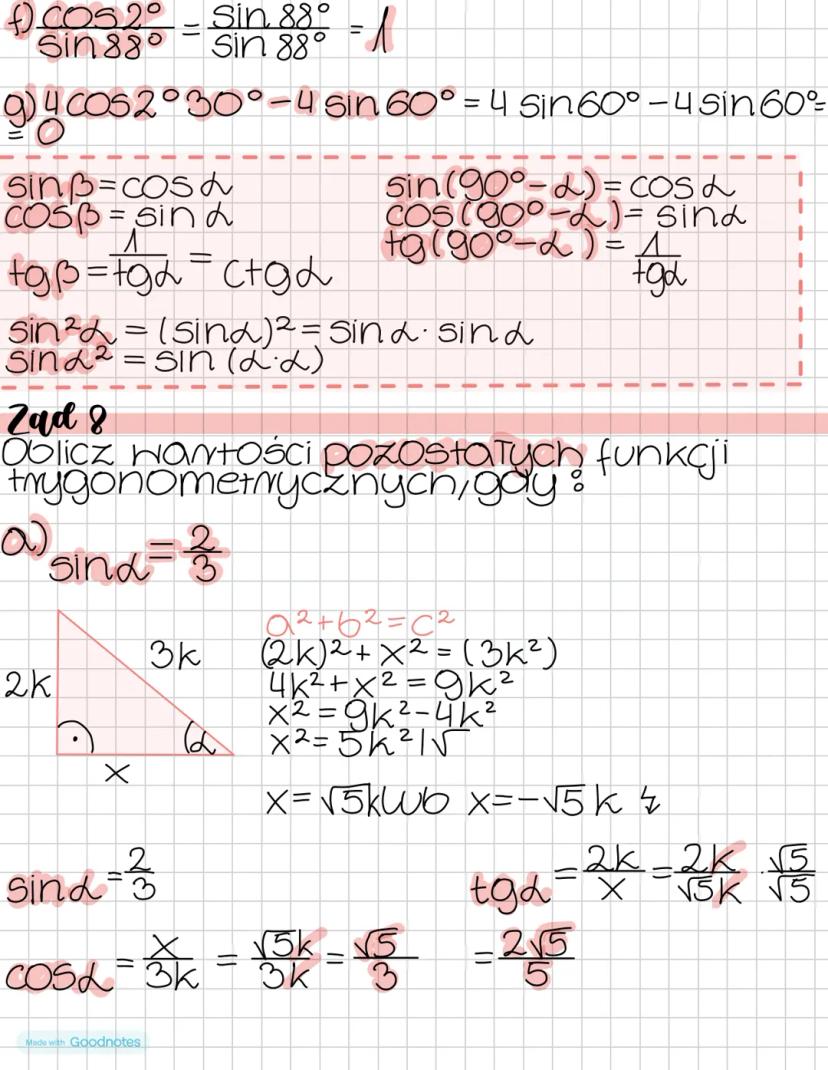 f) cos2°/sin88° = sin88°/sin88° = 1
g) 4cos2°30° - 4sin60° = 4sin60° - 4sin60° =
= 0
sinβ = cosα
cosβ = sinα
tgβ = 1/tgα = ctgα
sin(90°-α) = cosα
cos(90°-α) = sinα
tg(90°-α) = 1/tgα
sin²α = (sinα)² = sinα · sinα
sinα² = sin(α·α)
Zad 8
Oblicz wartości pozostałych funkcji
trygonometrycznych, gdy:
a) sinα = 2/3
2k
3k
α
x
a² + b² = c²
(2k)² + x² = (3k²)
4k² + x² = 9k²
x² = 9k² - 4k²
x² = 5k² |√
x = √5k lub x = -√5k ↯
sinα = 2/3
cosα = x/3k = √5k/3k = √5/3
tgα = 2k/x = 2k/√5k · √5/√5
= 2√5/5
Made with Goodnotes